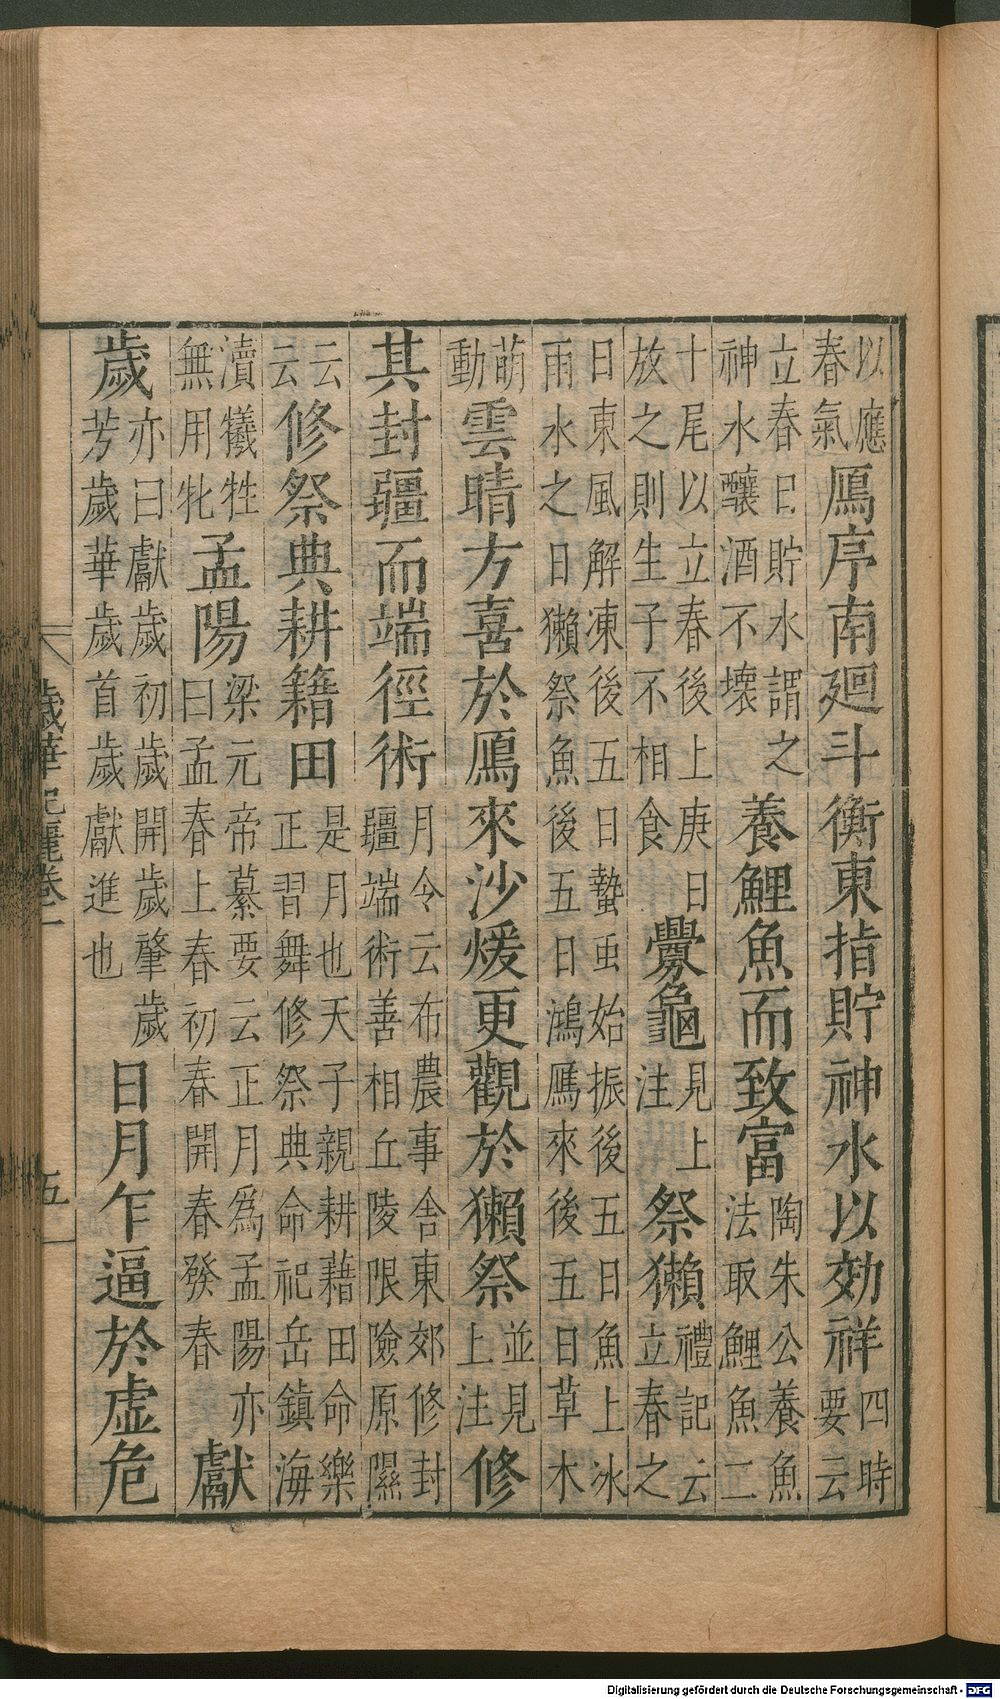 以應春氣鴈序南廻斗衡東指貯神水以効祥四時要云
立春日貯水謂之神水釀酒不壞養鯉魚而致富陶朱公養魚法取鯉魚二
十尾以立春後上庚日放之則生子不相食釁龜見上注祭獺禮記云立春之
日東風解凍後五日蟄虫始振後五日魚上冰雨水之日獺祭魚後五日鴻鴈來後五日草木
萌動雲晴方喜於鴈來沙煖更觀於獺祭並見上注修
其封疆而端徑術月令云布農事舍東郊修封疆端術善相丘陵限險原隰
云云修祭典耕籍田是月也天子親耕藉田命樂正習舞修祭典命祀岳鎮海
瀆犧牲無用牝孟陽梁元帝纂要云正月爲孟陽亦曰孟春上春初春開春發春獻
歲亦曰獻歲初歲開歲肇歲芳歲華歲首歲獻進也日月乍逼於虛危
歲華紀麗卷一
五
Digitalisierung gefördert durch die Deutsche Forschungsgemeinschaft - DFG